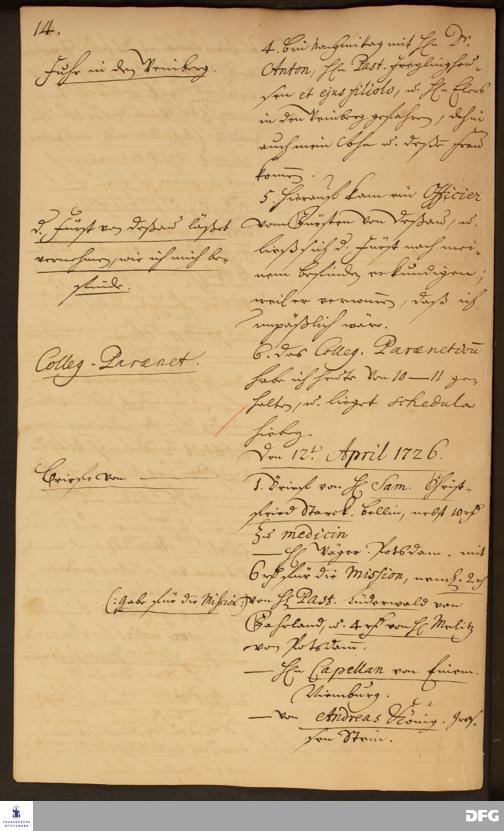 14.
Fuhr in den Weinberg.
4. Bin nachmittag mit H. Dr.
Anton, H. Past. Freylinghau-
sen et ejus filiolo, u. H. Elers
in den Weinberg gefahren, dahin
auch mein Sohn u. deßen Frau
kommen.
d. Fürst von Deßau läßet
vernehmen, wie ich mich be-
finde.
5. Hierauf kam ein Officier
vom Fürsten von Deßau, u.
ließ sich d. Fürst nach mei-
nem befinden erkundigen;
weil er vernommen, daß ich
unpäßlich wäre.
Colleg. Paraenet.
6. das Colleg. Paraeneticum
habe ich heute von 10–11 ge-
halten, u. lieget schedula
hiebey.
Den 12ten April 1726.
Briefe von
1. Brief von H. Sam. Christ-
fried Starck. Bellin, nebst 10 rh
zu medicin
— H. Jäger. Potsdam. mit
6 rh für die Mission, neml. 2 rh
(: Gabe für die Mission :)
von H. Past. Lüderwald von
Fahrland, u. 4 rh von H. Melitz
von Potsdam.
— H. Capellan von Einem.
Nienburg.
— von Andreas König. Gros-
sen Stein.
FRANCKESCHE
STIFTUNGEN
DFG